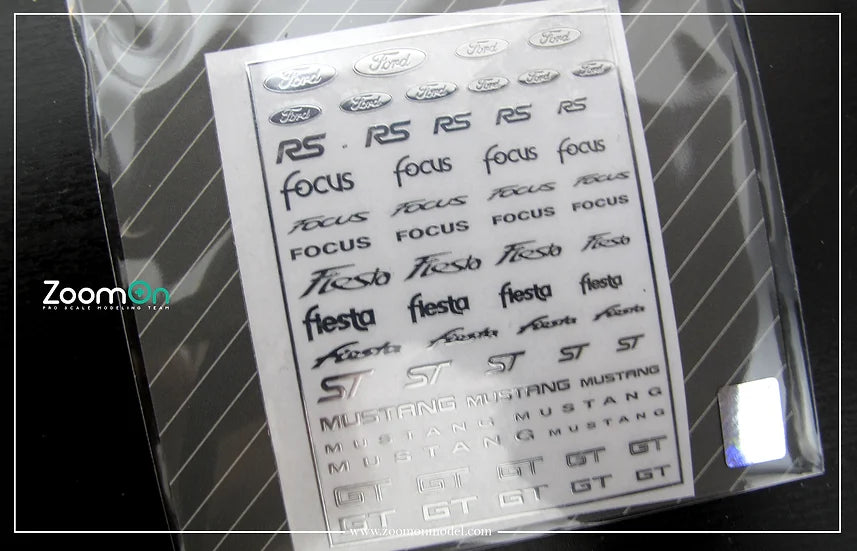 Ford Ford Ford Ford
Ford Ford Ford Ford Ford Ford
RS RS RS RS RS
focus focus focus focus
Focus Focus Focus Focus
FOCUS FOCUS FOCUS FOCUS
Fiesta Fiesta Fiesta Fiesta
fiesta fiesta fiesta fiesta
fiesta fiesta fiesta fiesta
ST ST ST ST ST
MUSTANG MUSTANG MUSTANG
MUSTANG MUSTANG
MUSTANG MUSTANG
GT GT GT GT GT
GT GT GT GT GT
ZoomOn
PRO SCALE MODELING TEAM
www.zoomonmodel.com